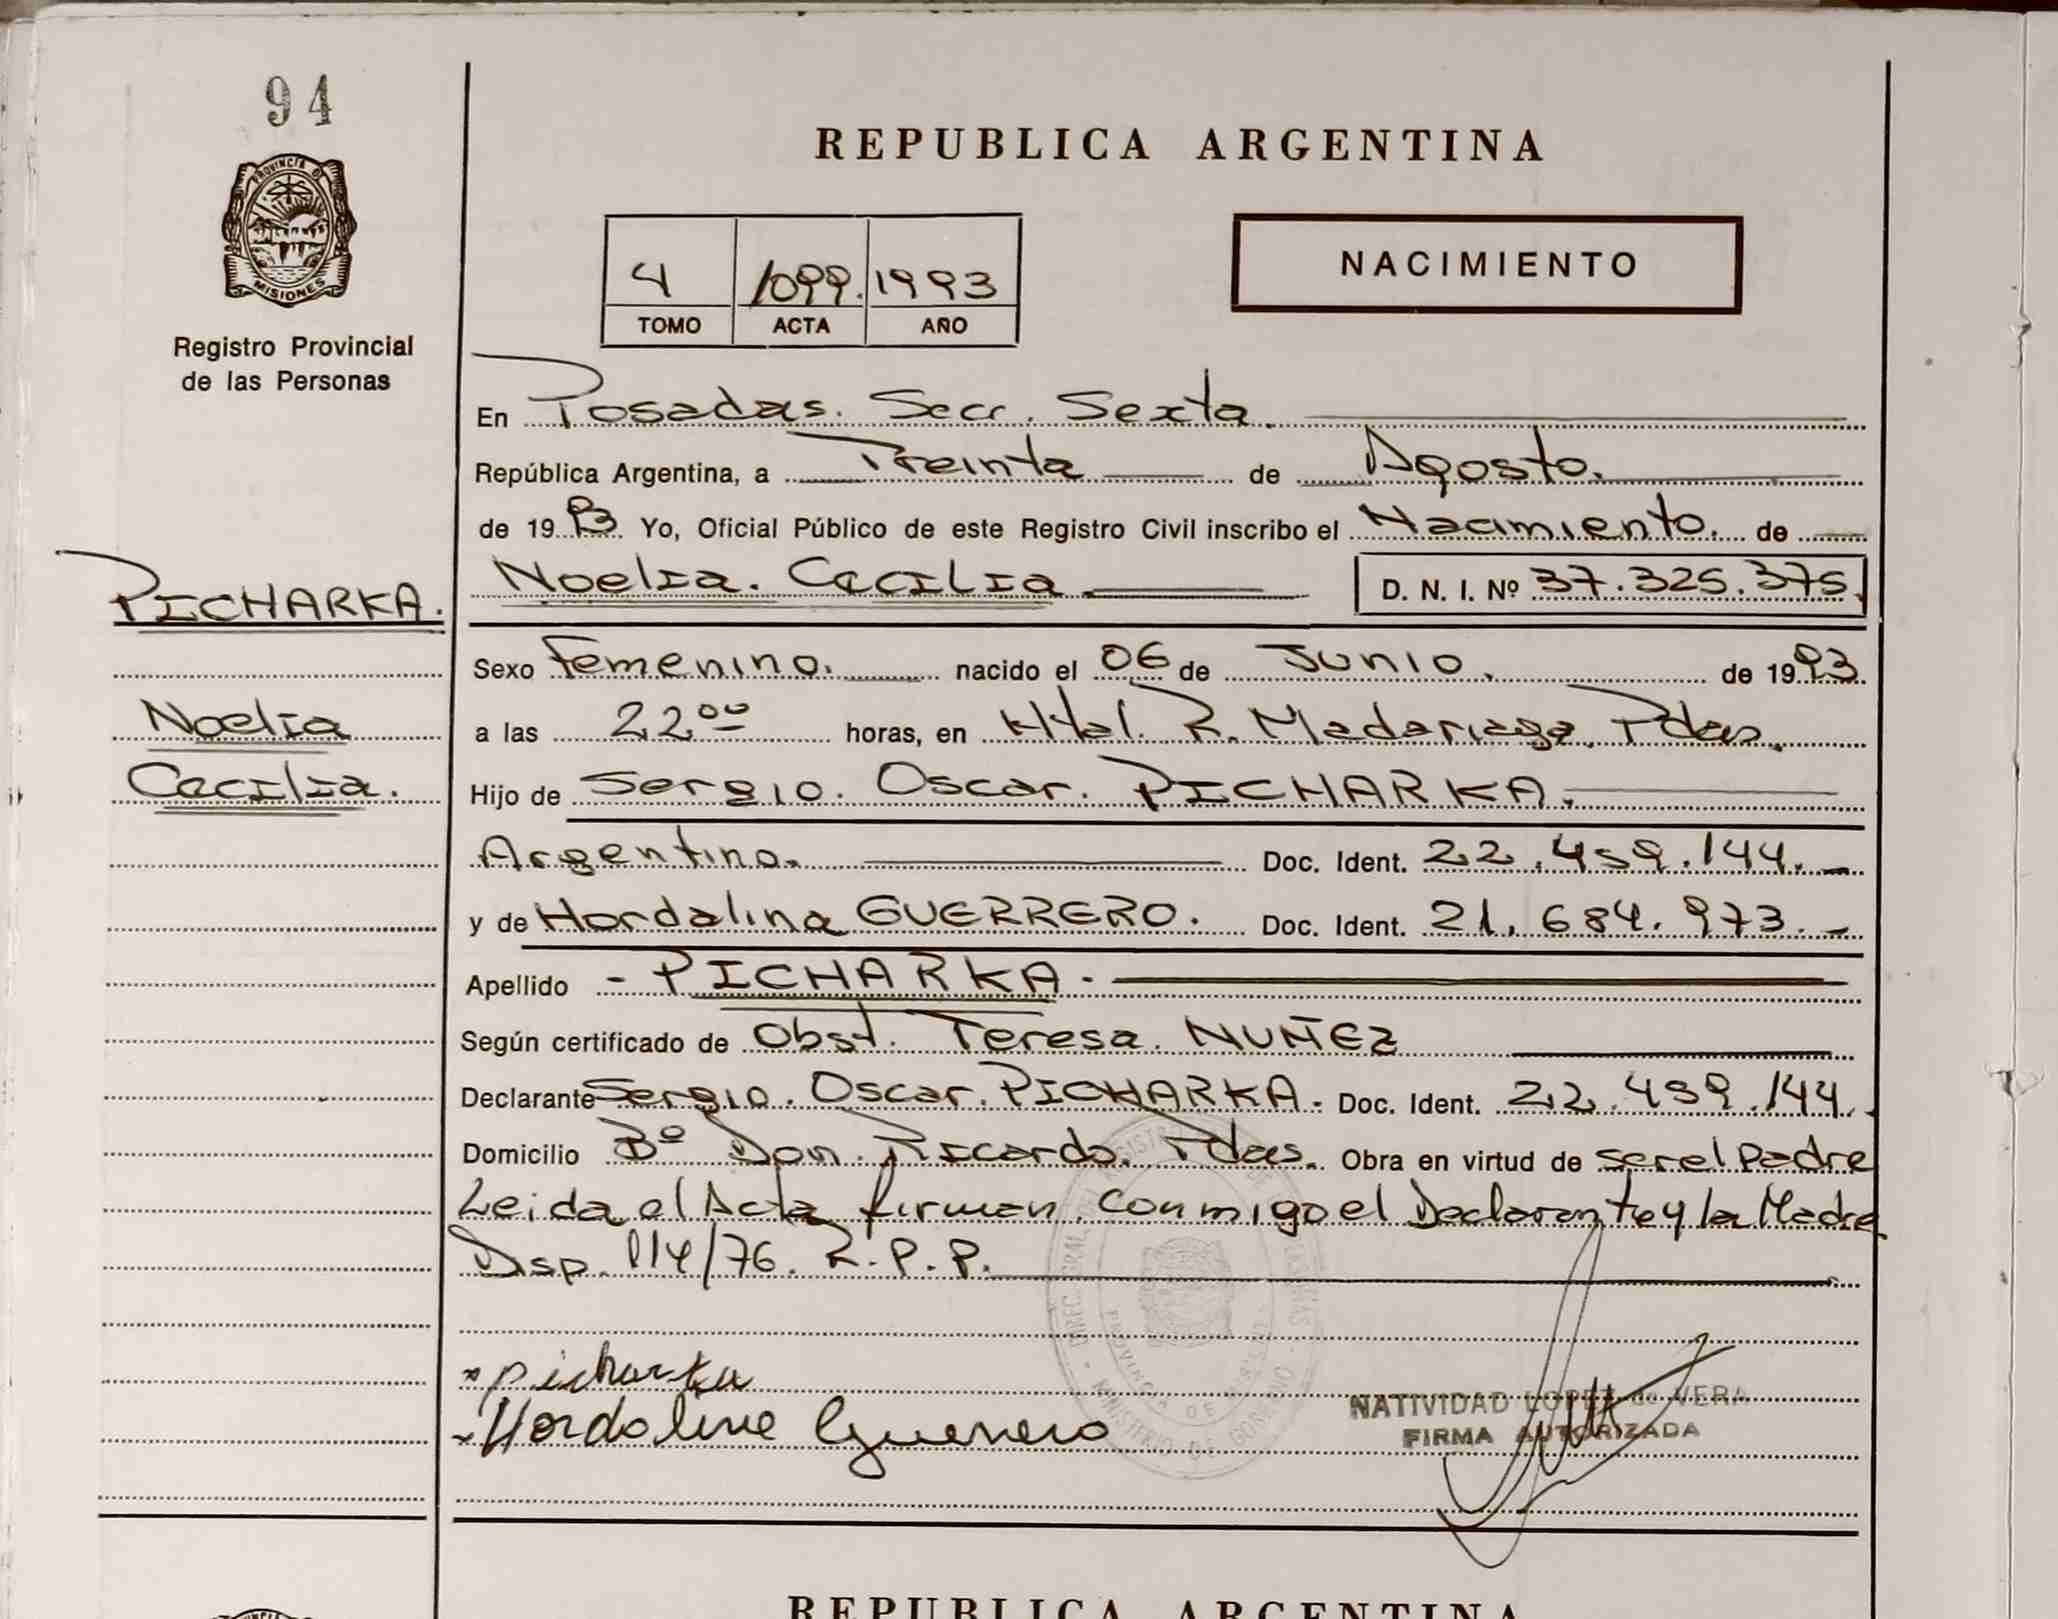 94
PROVINCIA DE
MISIONES
Registro Provincial
de las Personas
REPUBLICA ARGENTINA
4 1099. 1993
TOMO ACTA AÑO
NACIMIENTO
En Posadas. Secr. Sexta.
República Argentina, a Treinta de Agosto.
de 1993 Yo, Oficial Público de este Registro Civil inscribo el Nacimiento. de
PICHARKA.
Noelia. Cecilia. D. N. I. Nº 37.325.375.
Sexo femenino. nacido el 06 de Junio. de 1993.
Noelia
a las 22 00 horas, en Htal. R. Madariaga. Pdas.
Cecilia.
Hijo de Sergio. Oscar. PICHARKA.
Argentino. Doc. Ident. 22.459.144.-
y de Hordalina GUERRERO. Doc. Ident. 21.684.973.-
Apellido - PICHARKA.
Según certificado de Obst. Teresa. NUÑEZ
Declarante Sergio. Oscar. PICHARKA. Doc. Ident. 22.459.144.
Domicilio Bº Don. Ricardo. Pdas. Obra en virtud de ser el padre
Leida el Acta firman conmigo el Declarante y la Madre
Disp. 114/76. R.P.P.
picharka
Hordaline Guerrero
NATIVIDAD LOPEZ de VERA
FIRMA AUTORIZADA
MINISTERIO DE GOBIERNO
REPUBLICA ARGENTINA